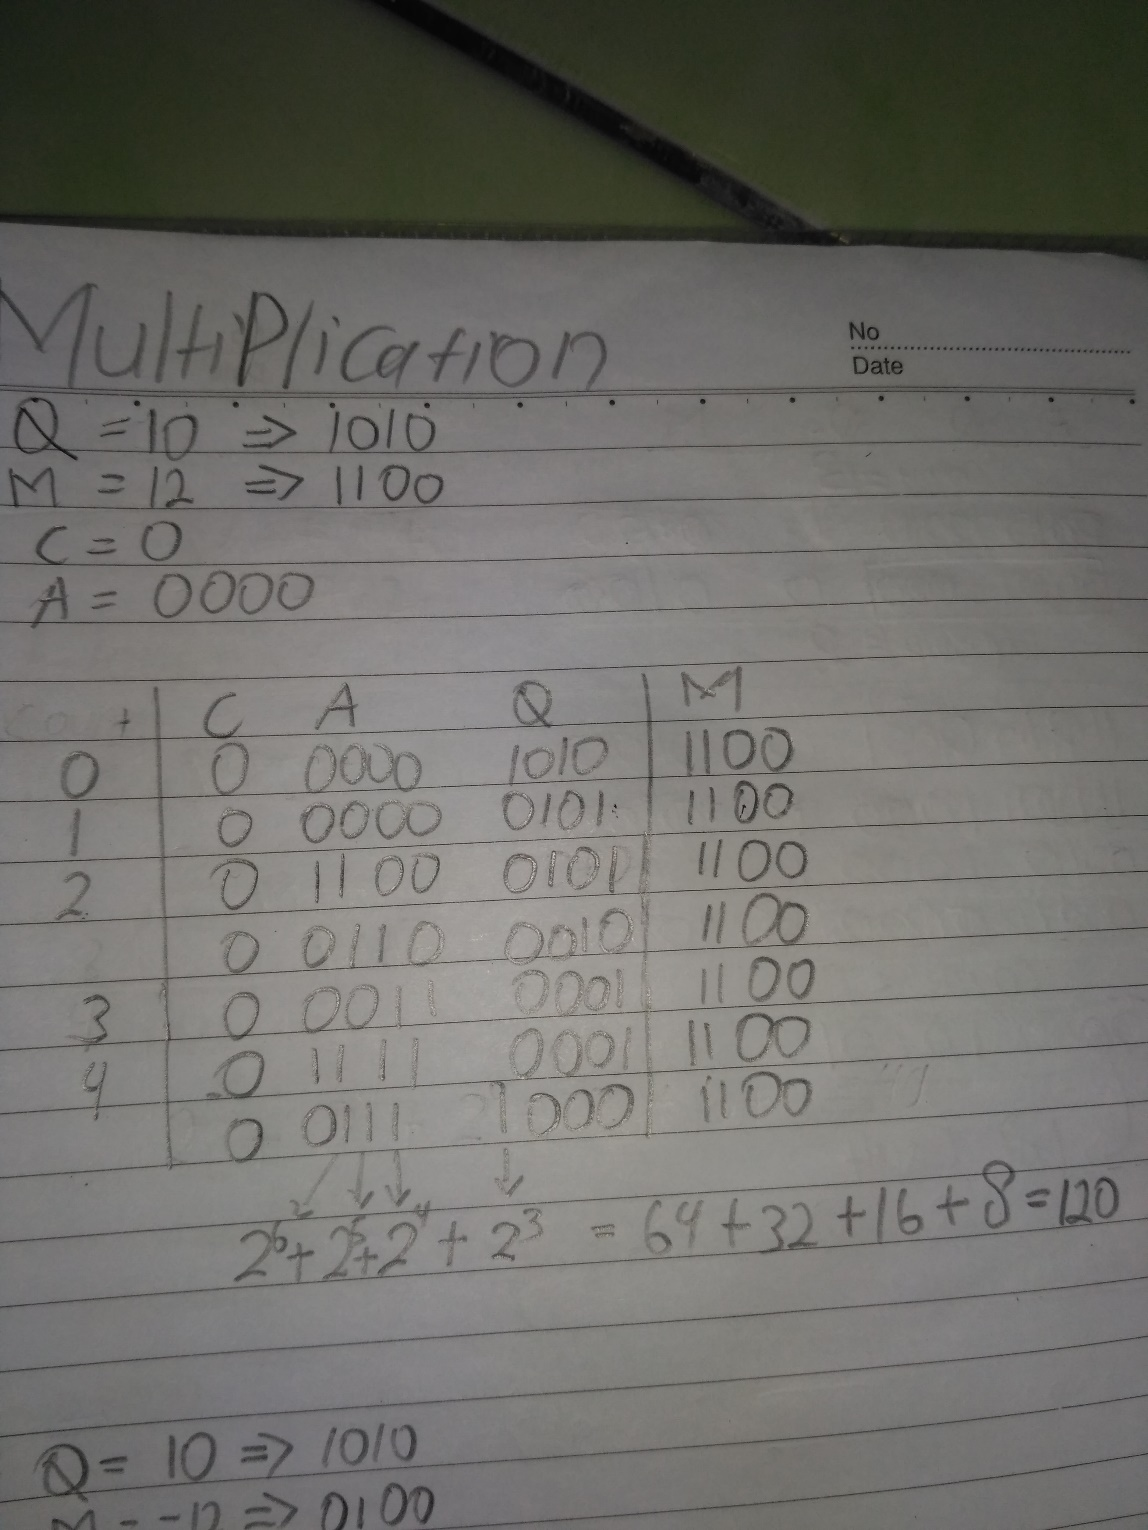 Multiplication
No
Date
Q = 10 ⇒ 1010
M = 12 ⇒ 1100
C = 0
A = 0000
C A Q M
0 0 0000 1010 1100
1 0 0000 0101 1100
2 0 1100 0101 1100
0 0110 0010 1100
3 0 0011 0001 1100
4 0 1111 0001 1100
0 0111 1000 1100
2⁶ + 2⁵ + 2⁴ + 2³ = 64 + 32 + 16 + 8 = 120
Q = 10 ⇒ 1010
M = -12 ⇒ 0100